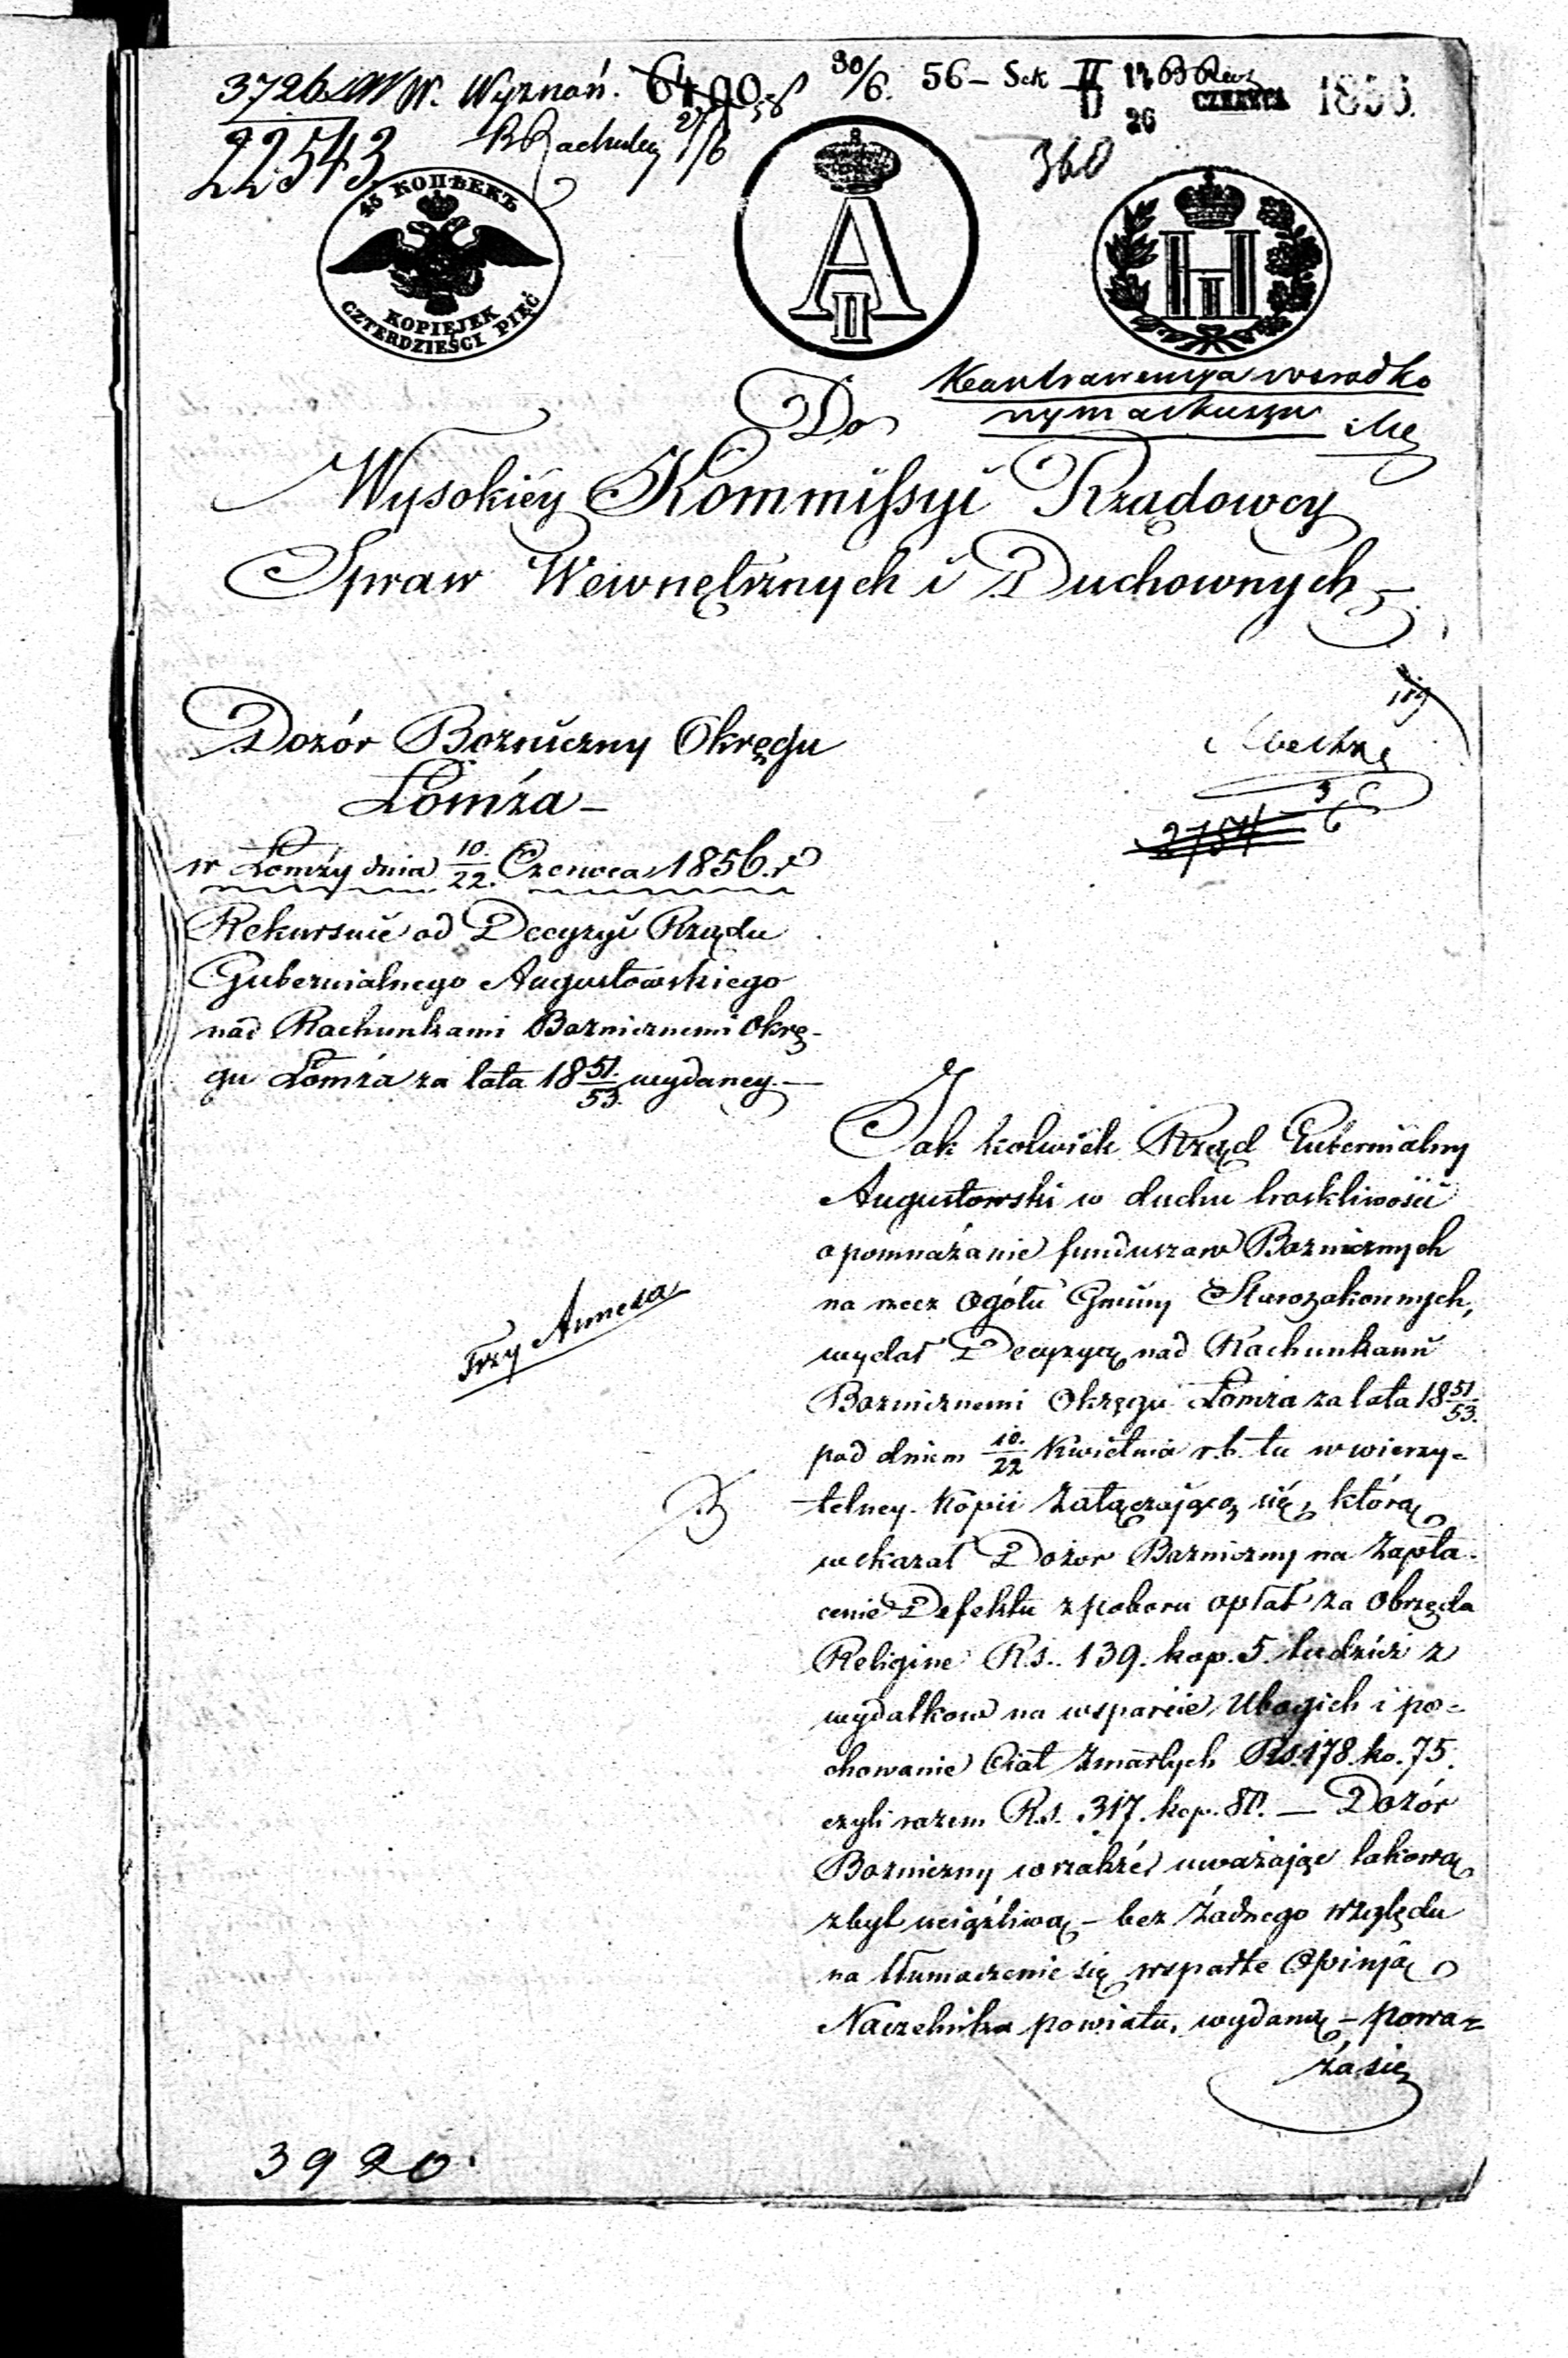 3726 W. Wyznań. 6490 30/6. 56 – Sek II
CZERWCA 1856.
26
22543
27/6
360
45 КОПѢЕКЪ
KOPIEJEK
CZTERDZIEŚCI PIĘĆ
A II
H I
Do
nym arkuszu
Wysokiéy Kommissyi Rządowey
Spraw Wewnętrznych i Duchownych
Dozór Bozniczny Okręgu
Łomża –
w Łomży dnia 10/22. Czerwca 1856. r
Rekursuie od Decyzyi Rządu
Gubernialnego Augustowskiego
nad Rachunkami Boznicznemi Okrę-
gu Łomża za lata 18 51/53. wydaney. –
Trzy Annexa
Jak kolwiek Rząd Gubernialny
Augustowski w duchu troskliwości
o pomnażanie funduszow Boznicznych
na rzecz Ogółu Gminy Starozakonnych,
wydał Decyzyą nad Rachunkami
Boznicznemi Okręgu Łomża za lata 18 51/53.
pod dniem 10./22 Kwietnia r.b. tu w wierzy-
telney Kopii załączającą się, którą
wskazał Dozor Bozniczny na zapła-
cenie Defektu z poboru opłat za obrzęda
Religine R.s. 139. kop. 5. tudzież z
wydatkow na wsparcie Ubogich i po-
chowanie Ciał zmarłych Rs. 178. ko. 75.
czyli razem R.s. 317. kop. 80. – Dozór
Bozniczny wszakże uważając takową
zbyt uciążliwą – bez żadnego względu
na tłumaczenie się wsparte Opinją
Naczelnika powiatu, wydaną – powa-
ża się
3920